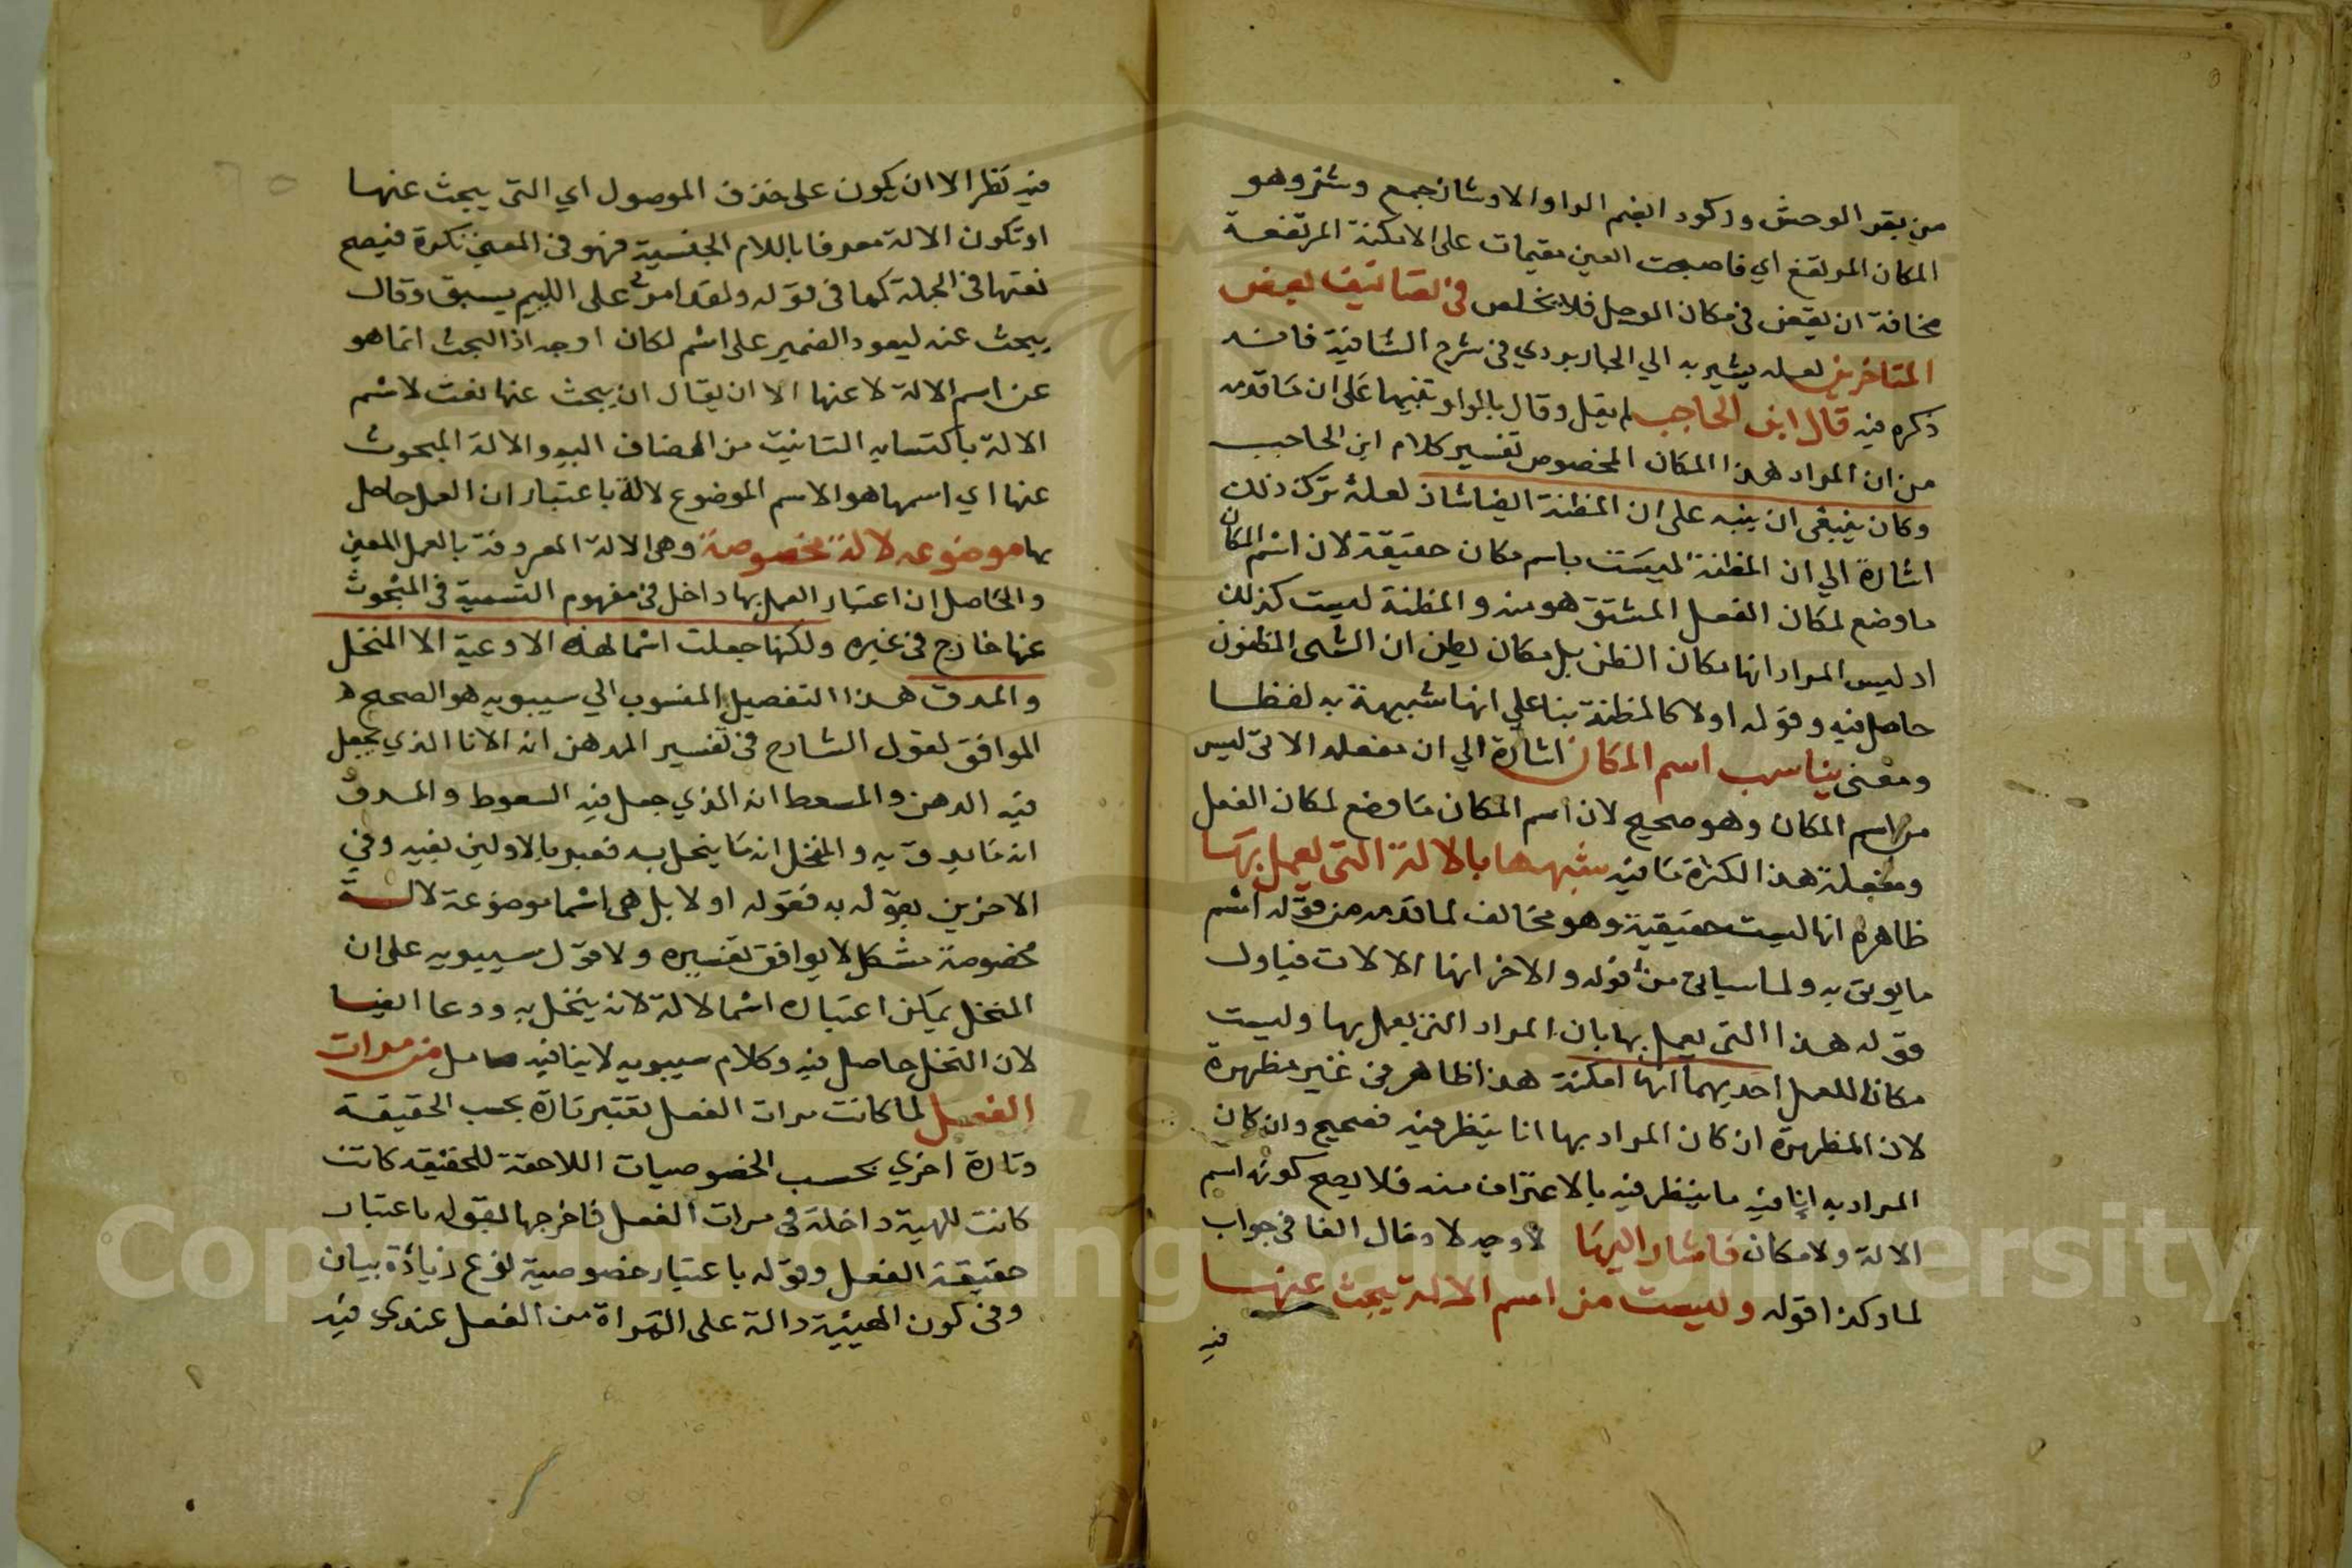 من بقر الوحش وركود انضم الواو الاوشاز جمع وشز وهو
المكان المرتفع اي فاصبحت العين مقيمات على الامكنة المرتفعة
مخافة ان يقعن في مكان الوحل فلا يخلص في تصانيف بعض
المتاخرين لعله يشير به الي الجاربردي في شرح الشافية فانه
ذكره فيه قال ابن الحاجب لم يقل وقال بالواو تنبيها على ان ما قدمه
من ان المراد هذا المكان المخصوص تفسير كلام ابن الحاجب
وكان ينبغي ان ينبه على ان المظنة ايضا شاذ لعله ترك ذلك
اشارة الي ان المظنة ليست باسم مكان حقيقة لان اسم المكان
ما وضع لمكان الفعل المشتق هو منه والمظنة ليست كذلك
اذ ليس المراد انها مكان الظن بل مكان يظن ان الشي المظنون
حاصل فيه وقوله اولا كالمظنة بنا علي انها شبيهة به لفظا
ومعنى يناسب اسم المكان اشارة الي ان مفعله الاتي ليس
من اسم المكان وهو صحيح لان اسم المكان ما وضع لمكان الفعل
ومفعلة هذا لكثرة ما فيه شبهها بالالة التي يعمل بها
ظاهره انها ليست حقيقية وهو مخالف لما قدمه من قوله اسم
ما يوتي به ولما سياتي من قوله والاخر انها الالات فياول
قوله هذا التي يعمل بها بان المراد التي يعمل بها وليست
مكانا للعمل احديهما انها امكنة هذا ظاهر في غير مظهرة
لان المظهرة ان كان المراد بها انا يتطهر فيه فصحيح وان كان
المراد به انا فيه ما يتطهر فيه بالاغتراف منه فلا يصح كونه اسم
الالة ولا مكان فاشار اليها لا وجه لادخال الفا في جواب
لما وكذا قوله وليست من اسم الالة يبحث عنها
فيه
فيه نظر الا ان يكون على حذف الموصول اي التي يبحث عنها
او تكون الالة معرفا باللام الجنسية فهو في المعني نكرة فيصح
نعتها في الجملة كما في قوله ولقد امر على اللئيم يسبني وقال
يبحث عنه ليعود الضمير على اسم لكان اوجه اذ البحث انما هو
عن اسم الالة لا عنها الا ان يقال ان يبحث عنها نعت لاسم
الالة باكتسابه التانيث من المضاف اليه والالة المبحوث
عنها اي اسمها هو الاسم الموضوع لالة باعتبار ان العمل حاصل
بها موضوعه لالة مخصوصة وهي الالة المعروفة بالعمل المعين
والحاصل ان اعتبار العمل بها داخل في مفهوم التسمية في المبحوث
عنها خارج في غيره ولكنها جعلت اسما لهذه الاوعية الا المنخل
والمدق هذا التفصيل المنسوب الي سيبويه هو الصحيح
الموافق لقول الشارح في تفسير المدهن انه الانا الذي يجعل
فيه الدهن والمسعط انه الذي جعل فيه السعوط والمدق
انه ما يدق به والمنخل انه ما ينخل به فعبر بالاولين بفيه وفي
الاخرين بقوله به فقوله اولا بل هي اسما موضوعة لالة
مخصوصة مشكل لا يوافق تفسيره ولا قول سيبويه على ان
المنخل يمكن اعتباره اسما لالة لانه ينخل به ووعا ايضا
لان النخل حاصل فيه وكلام سيبويه لا ينافيه من مرات
الفعل لما كانت مرات الفعل تعتبر تارة بحسب الحقيقة
وتارة اخري بحسب الخصوصيات اللاحقة للحقيقه كانت
كانت للهية داخلة في مرات الفعل فاخرجها بقوله باعتبار
حقيقة الفعل وقوله باعتبار خصوصية نوع زيادة بيان
وفي كون الهيئية دالة على المراة من الفعل عندي فيه
Copyright © King Saud University